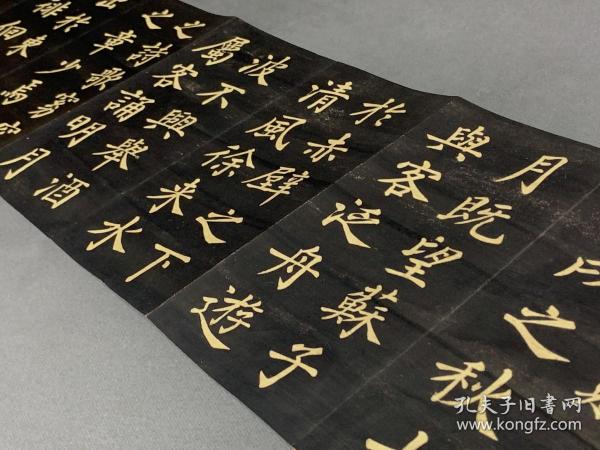 之秋
月既望蘇子
與客泛舟遊
於赤壁之下
清風徐来水
波不興舉酒
屬客誦明月
之詩歌窈
之章少焉
出於東
徘徊
孔夫子旧書网
www.kongfz.com